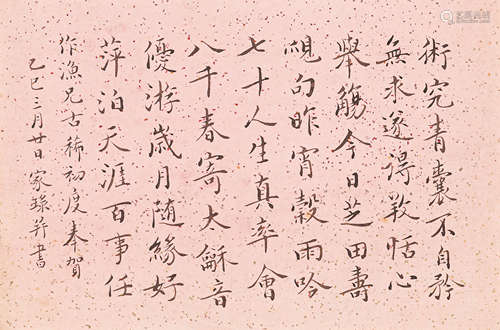 術究青囊不自矜
無求遂得致恬心
舉觴今日芝田壽
覓句昨宵穀雨吟
七十人生真率會
八千春寄大龢音
優游歲月隨緣好
萍泊天涯百事任
作漁兄古稀初度奉賀
乙巳三月廿日家騄并書